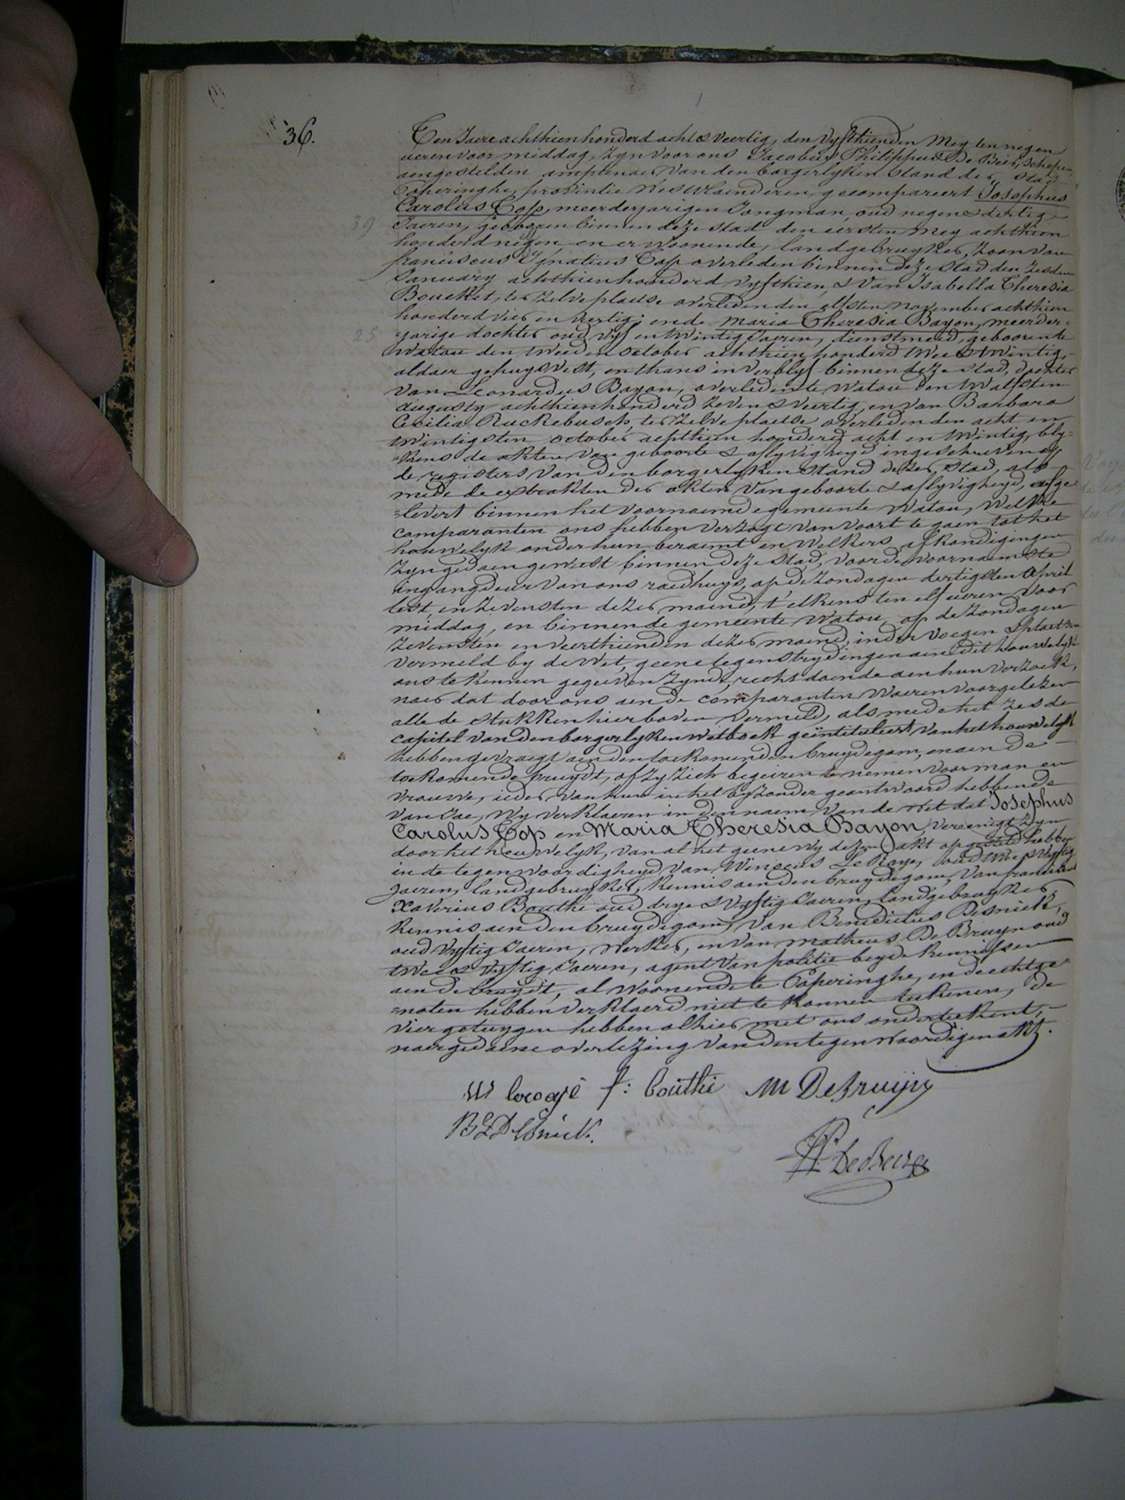 36.
Ten Jaere achthien honderd acht & veertig, den vyfthienden Mey ten negen
ueren voor middag, zyn voor ons Jacobus Philippus De Bees, Schepen
aengestelden amptenaer van den borgerlyken Stand der Stad
Poperinghe, provintie Westvlaenderen gecompareert Josephus
Carolus Top, meerderjarigen Jongman, oud negen & dertig
39
Jaeren, geboren binnen deze stad den eersten Mey achthien
honderd negen en er woonende, landgebruyker, zoon van
franciscus Ignatius Top overleden binnen deze stad den zesden
January achthien honderd vyfthien, & van Isabella Theresia
Boucket, ter zelve plaetse overleden den elfsten November achthien
honderd vier en veertig; ende Maria Theresia Bayon, meerder-
25
jarige dochter oud vyf en twintig Jaeren, dienstmeid, geboren te
Watou den tweeden october achthien honderd twee & twintig,
aldaer gehuysvest, en thans in verblyf binnen deze stad, dochter
van Leonardus Bayon, overleden te Watou den twalfsten
augusty achthien honderd zeven & veertig, en van Barbara
Cecilia Ruckebusch, ter zelve plaetse overleden den acht en
twintigsten october achthien honderd acht en twintig, bly-
kens de akten van geboorte & aflyvigheyd ingeschreven op
de registers van den borgerlyken stand dezer stad, als
mede de extrakten der akten van geboorte & aflyvigheyd, afge
=levert binnen het voornoemde gemeente Watou, Welke
comparanten ons hebben verzogt van voort te gaen tot het
houwelyk onder hun beraemt en welkers afkondigingen
zyn gedaen geweest binnen deze stad, voor de voornaemste
ingangdeur van ons raedhuys, op de zondagen dertigsten April
lest, en zevensten dezer maend, t'elkens ten elf ueren voor
middag, en binnen de gemeente Watou, op de zondagen
zevensten en veerthienden dezer maend, in der voegen & plaetsen
vermeld by de Wet, geene tegenstrydingen aen dit houwelyk
ons te kennen gegeven zynde, recht doende aen hun verzoek,
naer dat door ons aen de comparanten waeren voorgelezen
alle de stukken hierboven vermeld, als mede het zesde
capitel van den borgerlyken wetboek geïntituleert van het houwelyk
hebben gevraegt aen den toekomenden bruydegom, en aen de
toekomende bruydt, of zy zich begeiren te nemen voor man en
vrouwe, ieder van hun in het byzonder geantwoord hebbende
van Jae, Wy verklaeren in den naem van de Wet dat Josephus
Carolus Top en Maria Theresia Bayon, vereenigt zyn
door het houwelyk, van al het geene wy dezen akt opgesteld hebben
in de tegenwoordigheyd van Vincens Locoge, oud vyftig
Jaeren, landgebruyker, kennis aen den bruydegom, van franciscus
Xaverius Bouthé oud drye & vyftig Jaeren, landgebruyker,
kennis aen den bruydegom, van Benedictus Desnick,
oud vyftig Jaeren, werker, en van Matheus De Bruyn oud
twee & vyftig Jaeren, agent van politie beyde kennissen
aen de bruydt, al woonende te Poperinghe, en de echtge
=noten hebben verklaerd niet te konnen teekenen, de
vier getuygen hebben alhier met ons onderteekent,
naer gedaene overlezing van den tegenwoordigen akt.
f: bouthé M Debruijn